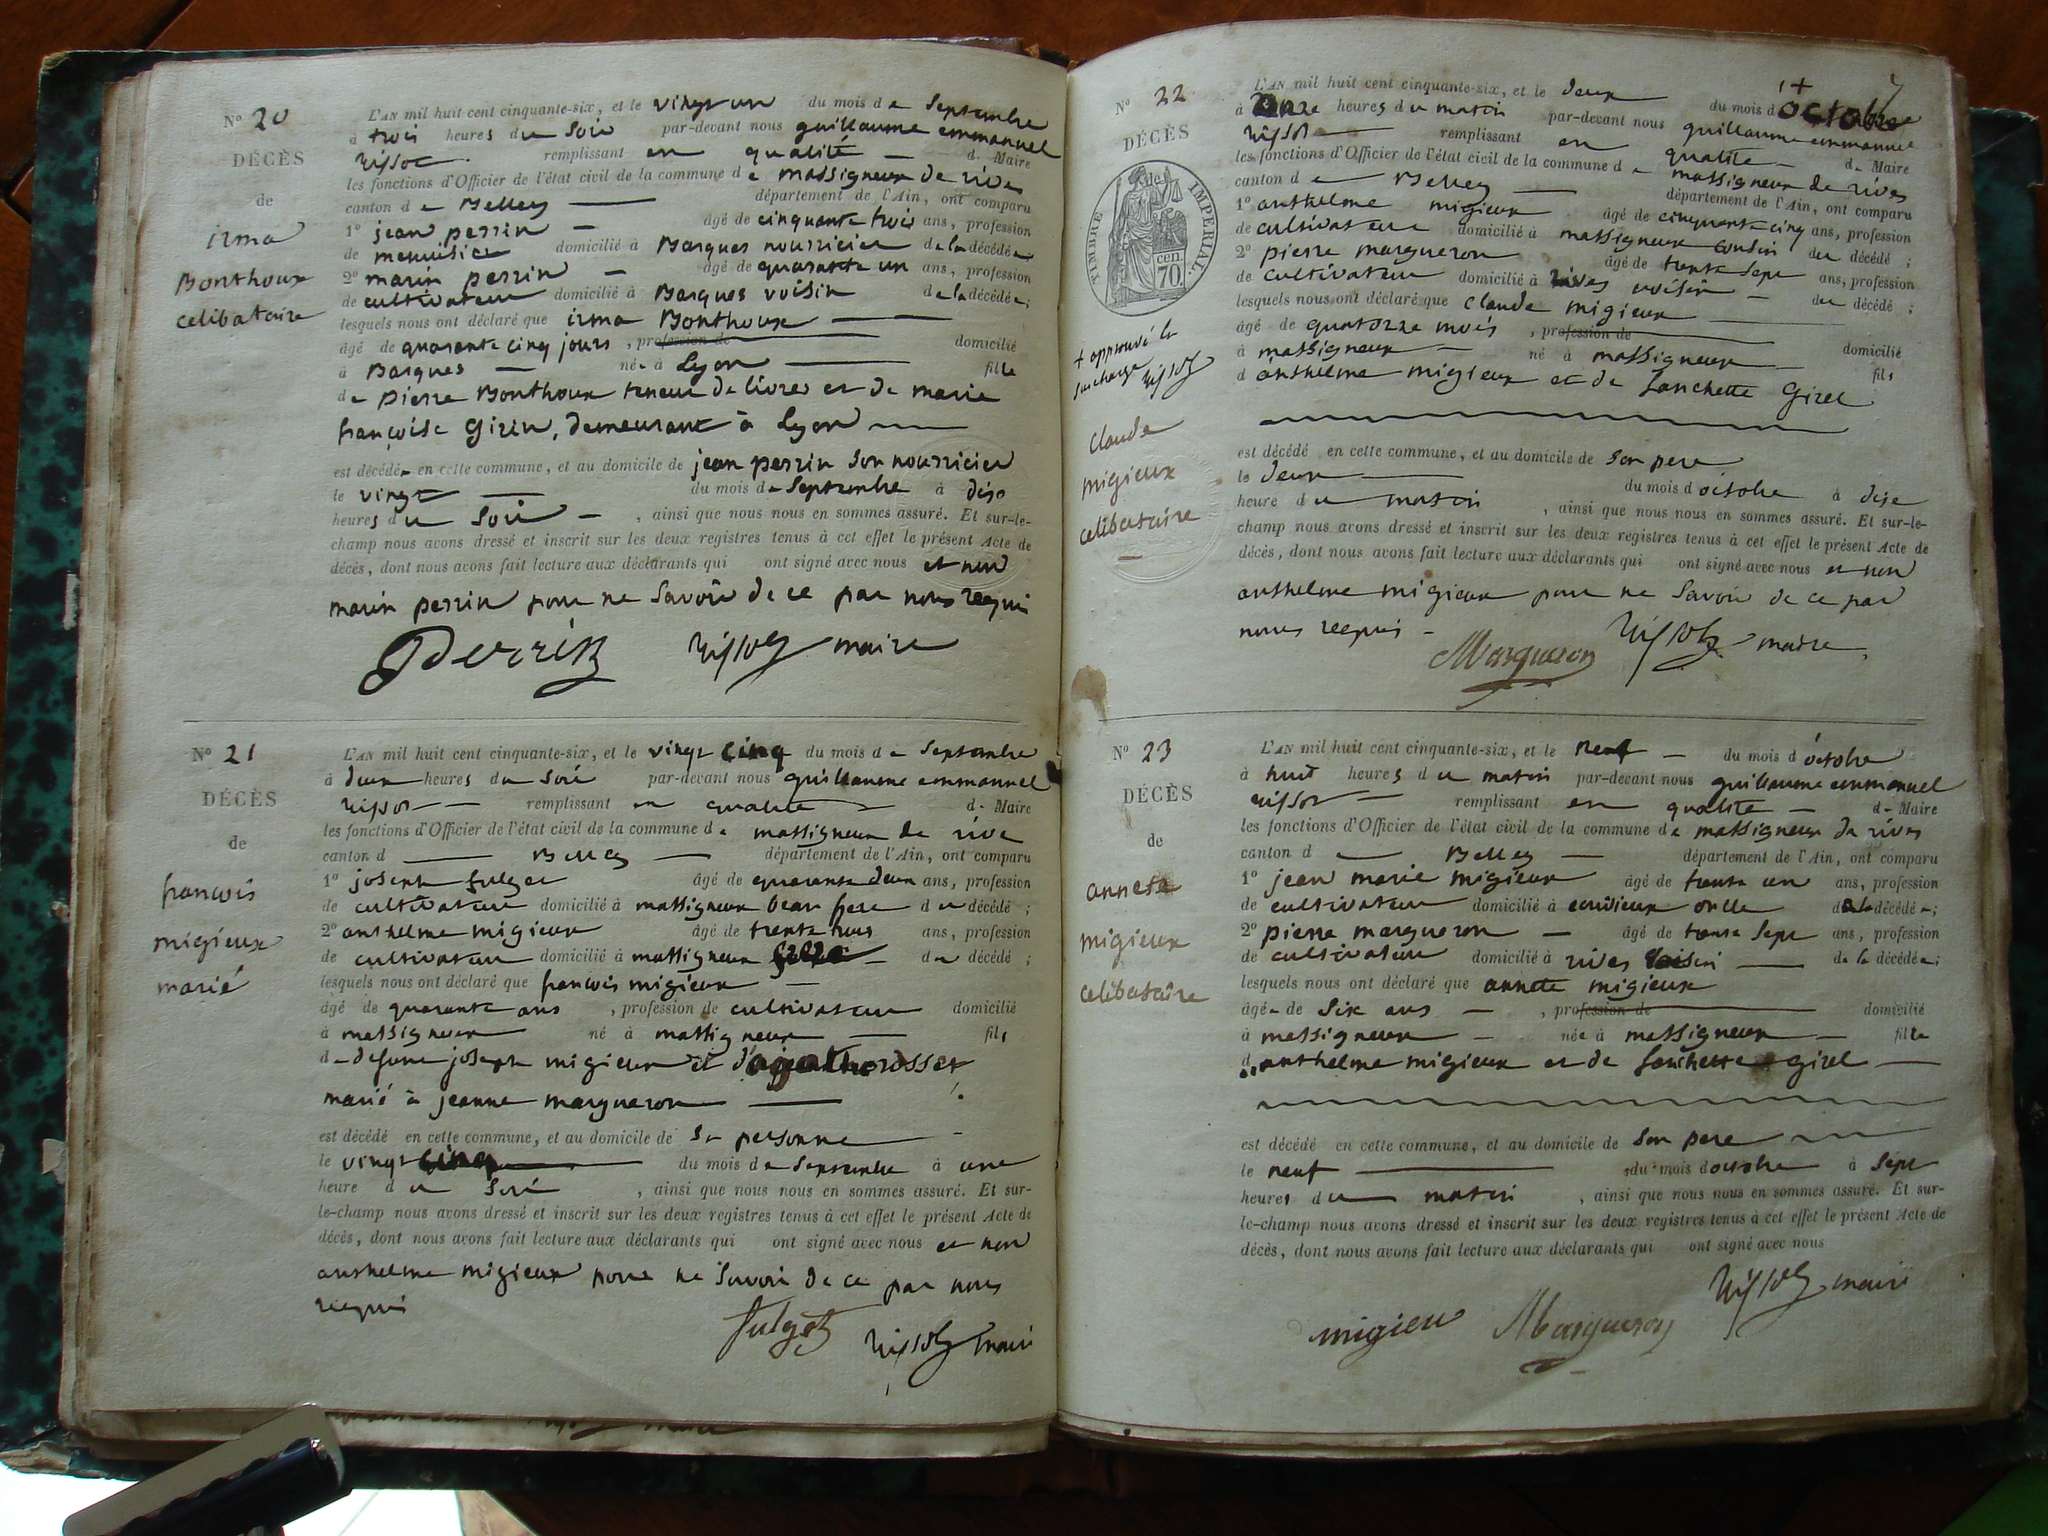 N° 20
DÉCÈS
de
irma
Bonthoux
celibataire
L'AN mil huit cent cinquante-six, et le vingt un du mois de Septembre
à trois heures du Soir par-devant nous guillaume emmanuel
Rissoz remplissant en qualité de Maire
les fonctions d'Officier de l'état civil de la commune de massigneux de rives
canton de Belley département de l'Ain, ont comparu
1° jean perrin âgé de cinquante trois ans, profession
de menuisier domicilié à Barques nourricier de la décédée
2° marin perrin âgé de quarante un ans, profession
de cultivateur domicilié à Barques voisin de la décédée;
lesquels nous ont déclaré que irma Bonthoux
âgé de quarante cinq jours, profession de domicilié
à Barques née à Lyon fille
de pierre Bonthoux teneur de livre et de marie
françoise Girin, demeurant à Lyon
est décédée en cette commune, et au domicile de jean perrin Son nourricier
le vingt du mois de Septembre à dix
heures du Soir, ainsi que nous nous en sommes assuré. Et sur-le-
champ nous avons dressé et inscrit sur les deux registres tenus à cet effet le présent Acte de
décès, dont nous avons fait lecture aux déclarants qui ont signé avec nous et non
marin perrin pour ne Savoir de ce par nous requi
Perrin Rissoz maire
N° 21
DÉCÈS
de
françois
migieux
marié
L'AN mil huit cent cinquante-six, et le vingt cinq du mois de Septembre
à deux heures du Soir par-devant nous guillaume emmanuel
Rissoz remplissant en qualité de Maire
les fonctions d'Officier de l'état civil de la commune de massigneux de rive
canton d Belley département de l'Ain, ont comparu
1° joseph fulget âgé de quarante deux ans, profession
de cultivateur domicilié à massigneux beau frere du décédé;
2° anthelme migieux âgé de trente trois ans, profession
de cultivateur domicilié à massigneux du décédé;
lesquels nous ont déclaré que françois migieux
âgé de quarante ans, profession de cultivateur domicilié
à massigneux né à massigneux fils
de defunt joseph migieux et d'agathe rosset
marié à jeanne margueron
est décédé en cette commune, et au domicile de Sa personne
le vingt cinq du mois de Septembre à une
heure du Soir, ainsi que nous nous en sommes assuré. Et sur-
le-champ nous avons dressé et inscrit sur les deux registres tenus à cet effet le présent Acte de
décès, dont nous avons fait lecture aux déclarants qui ont signé avec nous et non
anthelme migieux pour ne Savoir de ce par nous
requi
fulget Rissoz maire
N° 22
DÉCÈS
de
TIMBRE IMPERIAL
70 cen.
+ approuvé la
surcharge Rissoz
Claude
migieux
celibataire
L'AN mil huit cent cinquante-six, et le deux du mois d'octobre
à onze heures du matin par-devant nous guillaume emmanuel
Rissoz remplissant en qualité de Maire
les fonctions d'Officier de l'état civil de la commune de massigneux de rives
canton de Belley département de l'Ain, ont comparu
1° anthelme migieux âgé de cinquante cinq ans, profession
de cultivateur domicilié à massigneux cousin du décédé;
2° pierre margueron âgé de trente Sept ans, profession
de cultivateur domicilié à rives voisin du décédé;
lesquels nous ont déclaré que Claude migieux
âgé de quatorze mois, profession de domicilié
à massigneux né à massigneux fils
d anthelme migieux et de fanchette Girel
est décédé en cette commune, et au domicile de Son pere
le deux du mois d octobre à dix
heure du matin, ainsi que nous nous en sommes assuré. Et sur-le-
champ nous avons dressé et inscrit sur les deux registres tenus à cet effet le présent Acte de
décès, dont nous avons fait lecture aux déclarants qui ont signé avec nous et non
anthelme migieux pour ne Savoir de ce par
nous requis
Margueron Rissoz maire
N° 23
DÉCÈS
de
annete
migieux
celibataire
L'AN mil huit cent cinquante-six, et le neuf du mois d'octobre
à huit heures du matin par-devant nous guillaume emmanuel
Rissoz remplissant en qualité de Maire
les fonctions d'Officier de l'état civil de la commune de massigneux de rives
canton d Belley département de l'Ain, ont comparu
1° jean marie migieux âgé de trente un ans, profession
de cultivateur domicilié à oncle de la décédée;
2° pierre margueron âgé de trente Sept ans, profession
de cultivateur domicilié à rives voisin de la décédée;
lesquels nous ont déclaré que annete migieux
âgée de Six ans, profession de domicilié
à massigneux née à massigneux fille
d anthelme migieux et de fanchette girel
est décédé en cette commune, et au domicile de Son pere
le neuf du mois d octobre à Sept
heures du matin, ainsi que nous nous en sommes assuré. Et sur-
le-champ nous avons dressé et inscrit sur les deux registres tenus à cet effet le présent Acte de
décès, dont nous avons fait lecture aux déclarants qui ont signé avec nous
migieu Margueron Rissoz maire